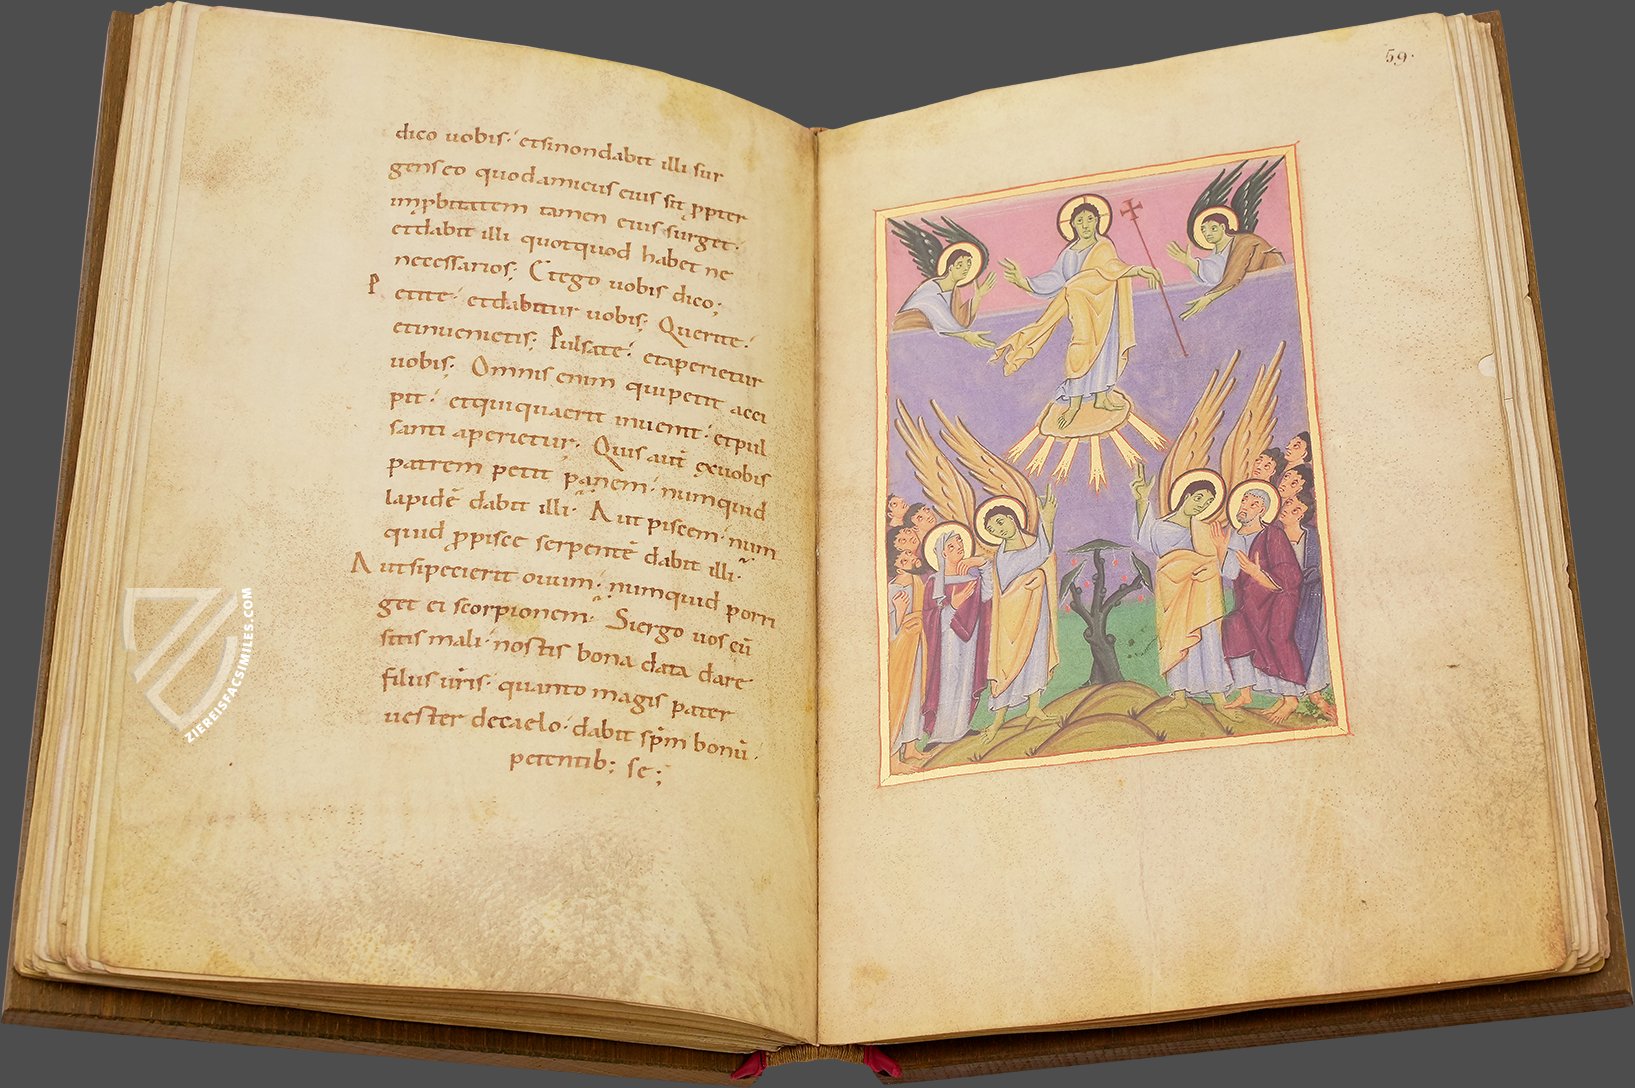 dico uobis· etsinondabit illi sur
gens eo quodamicus eius sit ꝓpter
imꝓbitatem tamen eius surget·
etdabit illi quotquod habet ne
necessarios; Etego uobis dico;
Petite· etdabitur uobis; Querite·
etinuenietis; Pulsate· etaperietur
uobis· Omnis enim quipetit acci
pit· etquiquaerit inuenit· etpul
santi aperietur· Quis aut̄ exuobis
patrem petit panem· numquid
lapidē dabit illi· Aut piscem· num
quid ꝓpisce serpentē dabit illi·
Autsipecierit ouum· numquid porri
get ei scorpionem· Siergo uos cū
sitis mali· nostis bona data dare
filiis uris· quanto magis pater
uester decaelo· dabit spm bonū·
petentib; se;
59·
ZIEREISFACSIMILES.COM